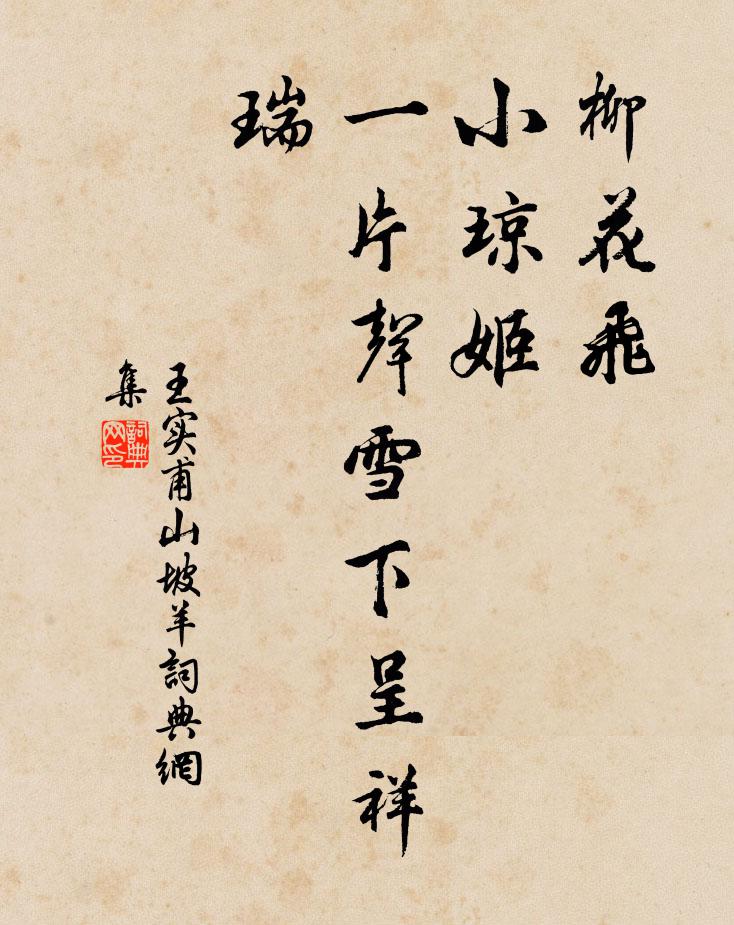 柳花飛
小琼姬
一片聲雪下呈祥
瑞
王实甫山坡羊詞典網
集
詞典
网印